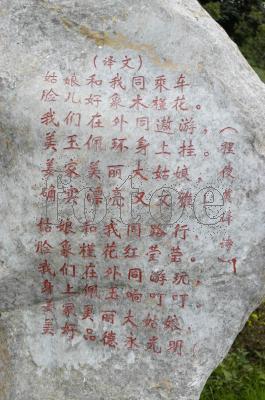 (译文)
姑娘和我同乘车
脸儿好象木槿花。
我们在外同遨游,
美玉佩环身上挂。
姜家美丽大姑娘,
确实漂亮又文雅。
姑娘和我同路行,
脸象槿花红莹莹。
我们在外同游玩,
身上佩玉响叮叮。
姜家美丽大姑娘,
美好品德永光明
fotoe